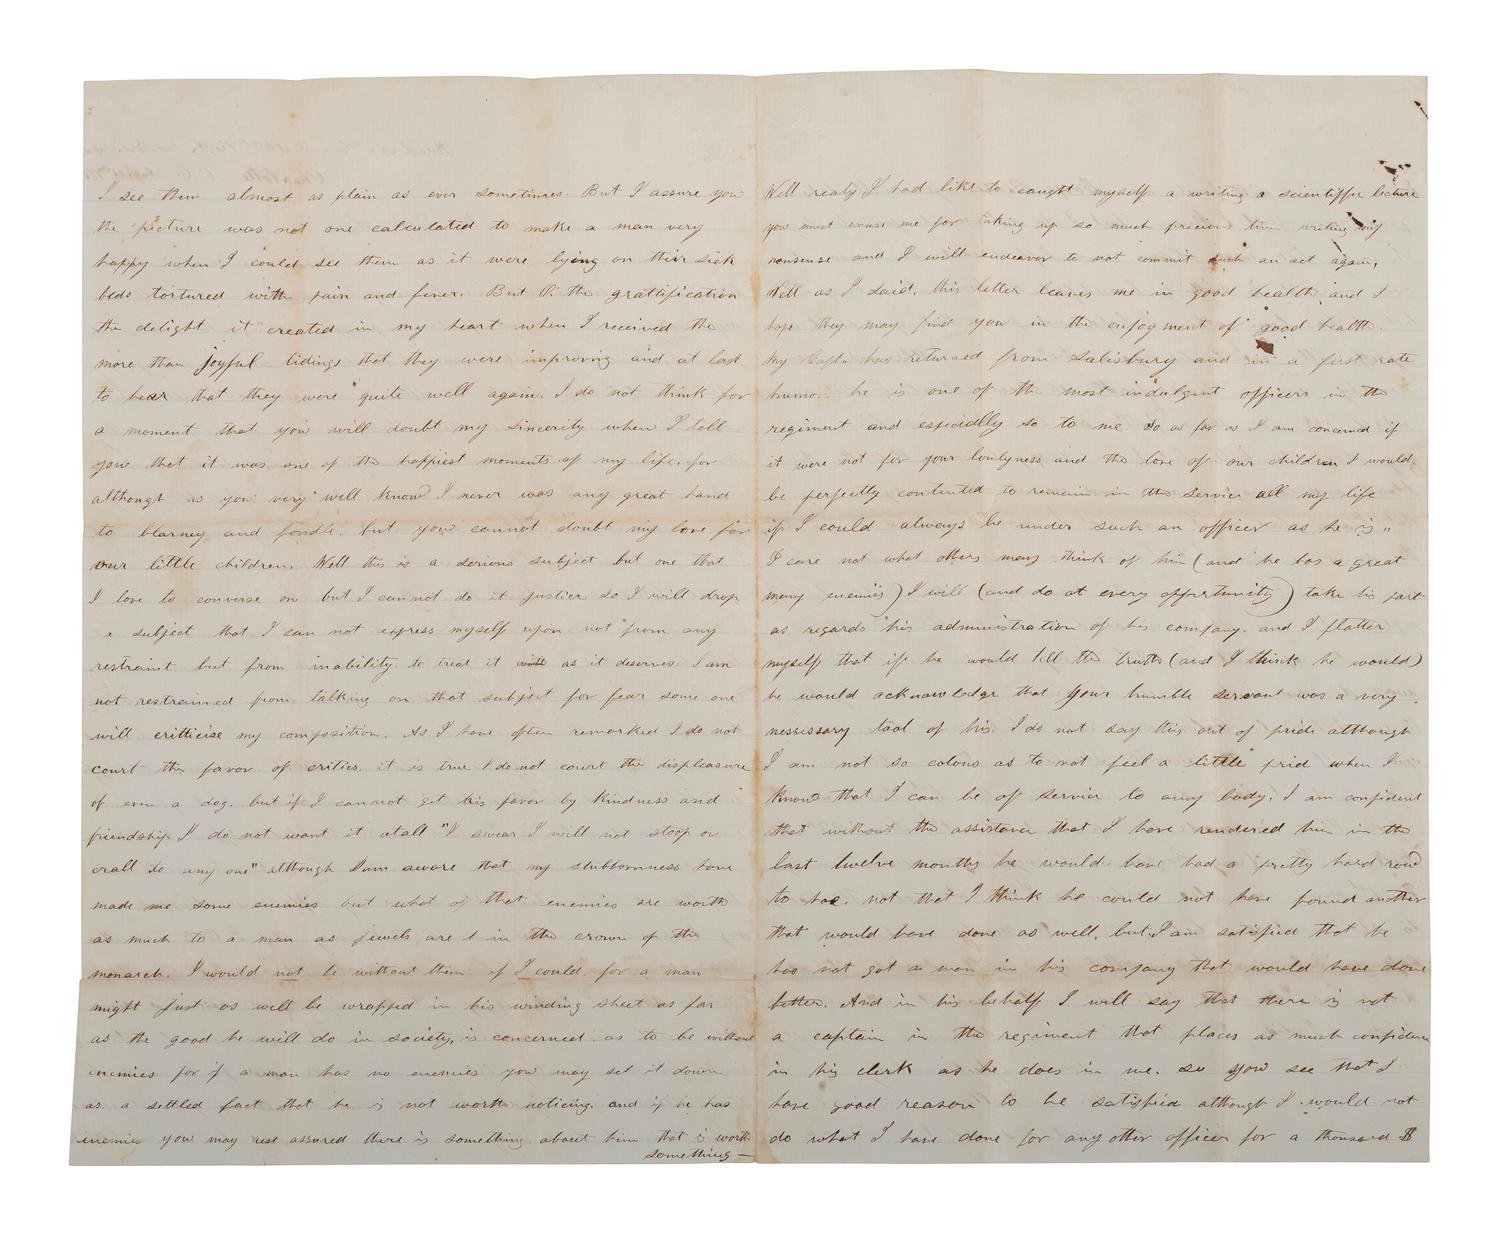 I see them almost as plain as ever sometimes. But I assure you
the picture was not one calculated to make a man very
happy when I could see them as it were lying on their sick
beds tortured with pain and fever. But O. the gratification
the delight it created in my heart when I received the
more than joyful tidings that they were improving and at last
to hear that they were quite well again. I do not think for
a moment that you will doubt my sincerity when I tell
you that it was one of the happiest moments of my life. for
althougt as you very well know I never was any great hand
to blarney and fondle. but you cannot doubt my love for
our little children. Well this is a serious subject but one that
I love to converse on but I can not do it justice so I will drop
a subject that I can not express myself upon not from any
restraint but from inability to treat it with as it deserves. I am
not restrained from talking on that subject for fear some one
will critticise my composition. As I have often remarked I do not
court the favor of critics. it is true I do not court the displeasure
of even a dog. but if I cannot get his favor by kindness and
friendship I do not want it atall "I swear I will not stoop or
crall to any one" although I am aware that my stubbornness have
made me some enemies but what of that enemies are worth
as much to a man as jewels are in the crown of the
monarch. I would not be without them if I could. for a man
might just as well be wrapped in his winding sheet as far
as the good he will do in society, is concerned. as to be without
enemies for if a man has no enemies you may set it down
as a settled fact that he is not worth noticing. and if he has
enemies you may rest assured there is something about him that is worth
something —
Well realy I had like to caught myself a writing a scientiffic lecture
you must excuse me for taking up so much precious time writing my
nonsense and I will endeavor to not commit such an act again,
Well as I said. this letter leaves me in good health and I
hope they may find you in the enjoyment of good health.
My Captn has returned from Salisbury and in a first rate
humor. he is one of the most indulgent officers in the
regiment and especially so to me So as far as I am concerned if
it were not for your lonlyness and the love of our children I would
be perfectly contented to remain in the service all my life
if I could always be under such an officer as he is"
I care not what others may think of him (and he has a great
many enemies) I will (and do at every oppertunity) take his part
as regards his administration of his company. and I flatter
myself that if he would tell the truth (and I think he would)
he would acknowledge that your humble servant was a very
nessessary tool of his. I do not say this out of pride although
I am not so colous as to not feel a little prid when I
know that I can be of service to any body. I am confident
that without the assistance that I have rendered him in the
last twelve months he would have had a pretty hard row
to hoe. not that I think he could not have found another
that would have done as well. but I am satisfied that he
has not got a man in his company that would have done
better. And in his behalf I will say that there is not
a captain in the regiment that places as much confidence
in his clerk as he does in me. so you see that I
have good reason to be satisfied although I would not
do what I have done for any other officer for a thousand $